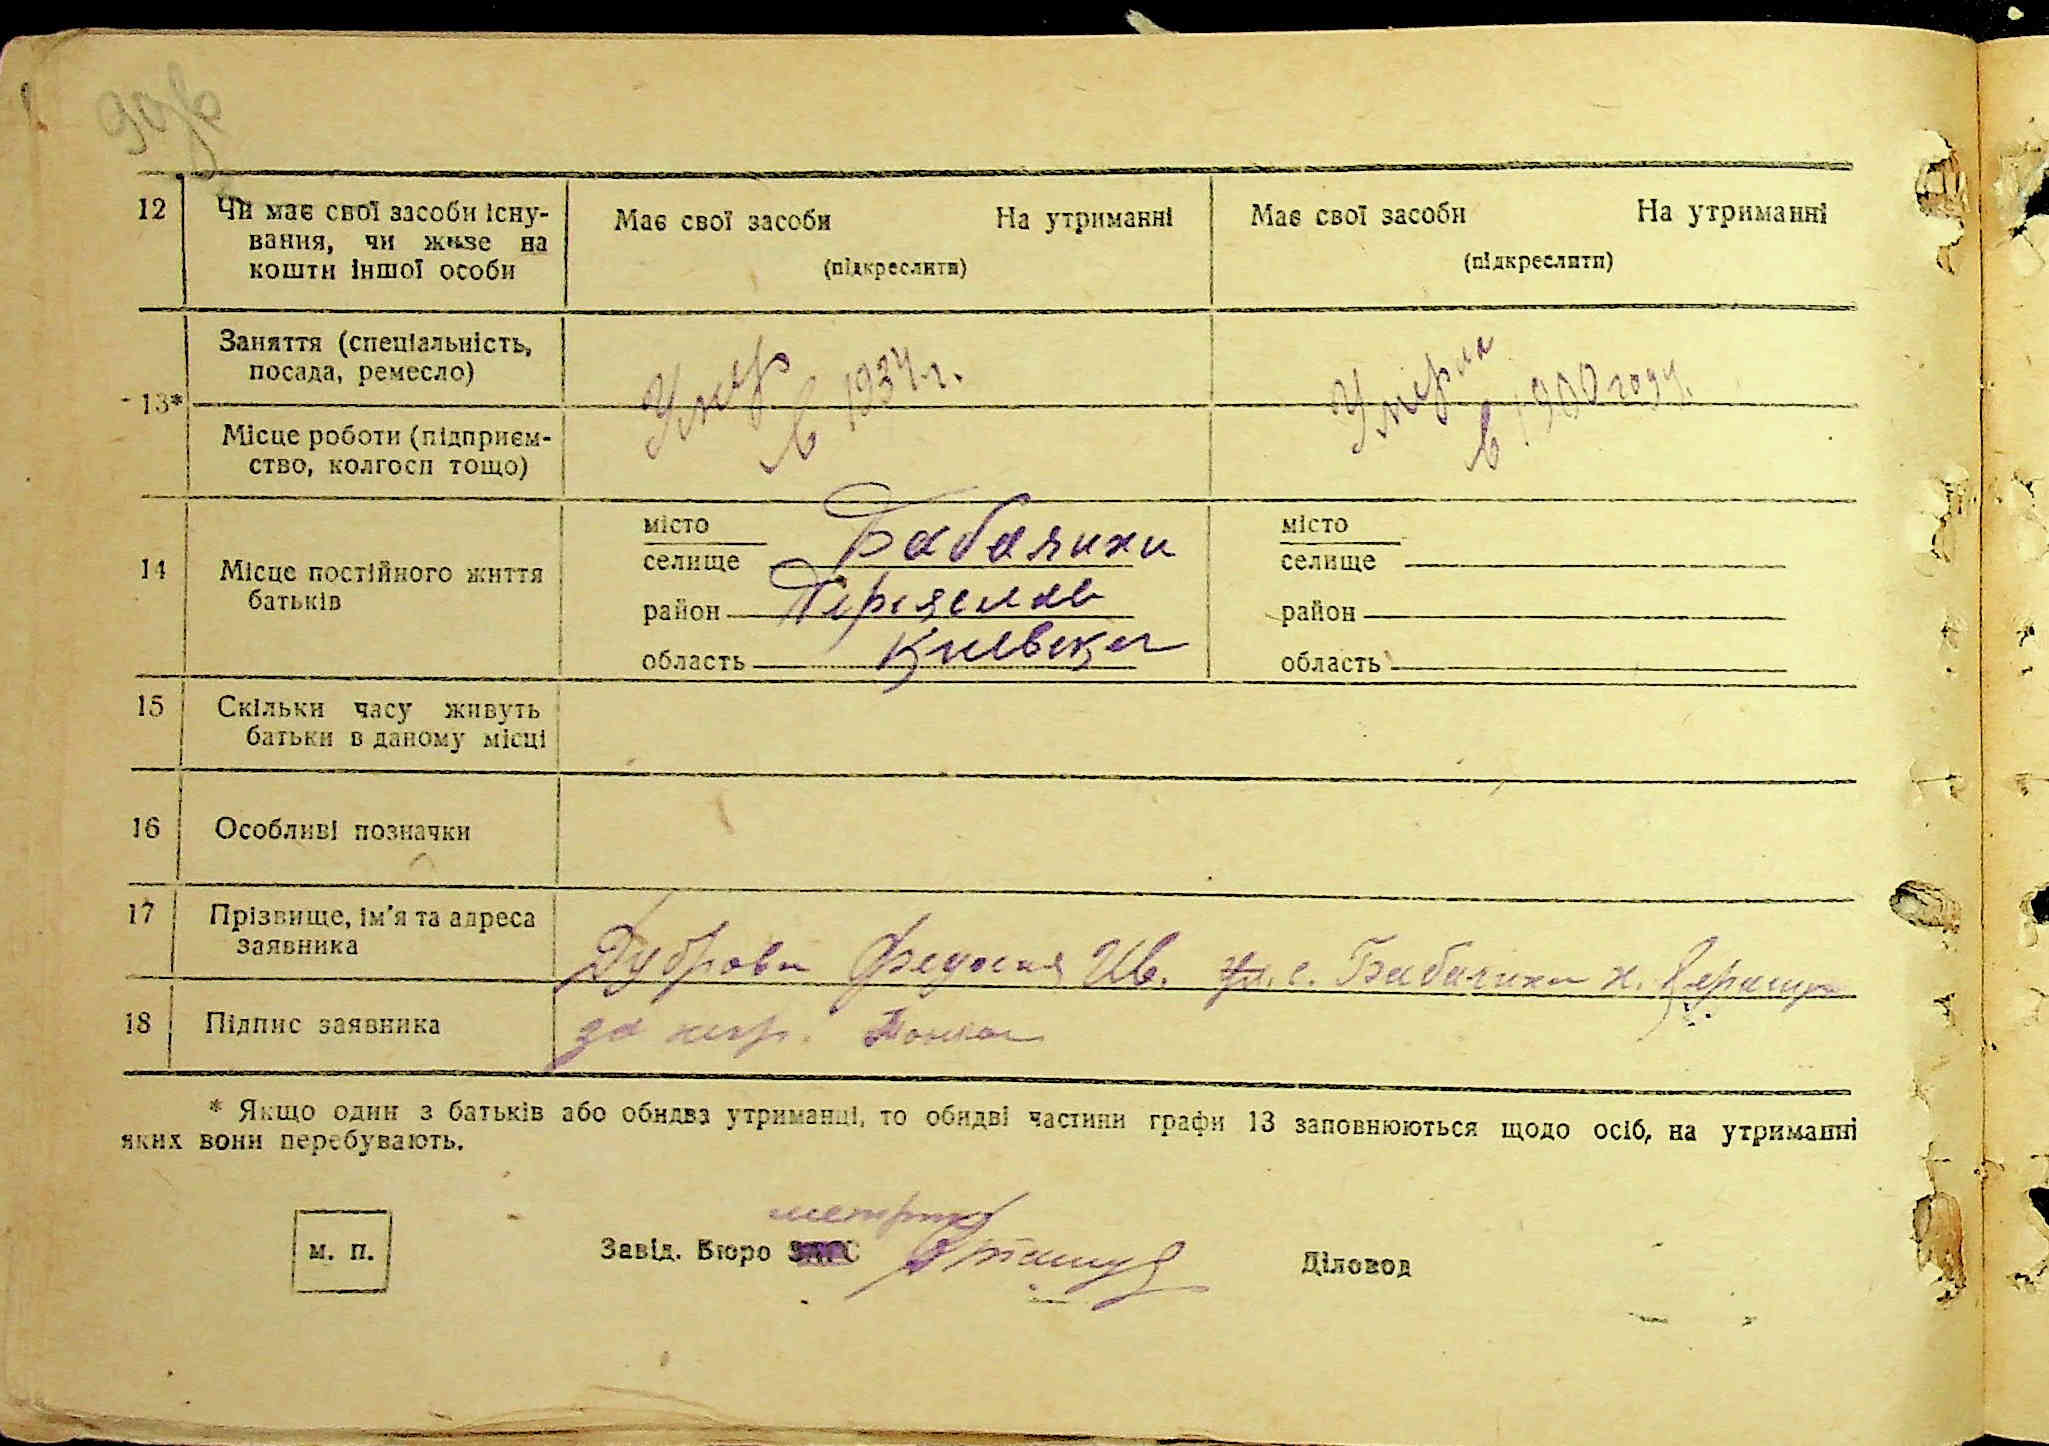 12
Чи має свої засоби існу-
вання, чи живе на
кошти іншої особи
Має свої засоби На утриманні
(підкреслити)
Має свої засоби На утриманні
(підкреслити)
13*
Заняття (спеціальність,
посада, ремесло)
Місце роботи (підприєм-
ство, колгосп тощо)
Умер
в 1934 г.
Умерла
в 1900 году.
14
Місце постійного життя
батьків
місто
селище Бабачихи
район Переяслав
область Киевская
місто
селище
район
область
15
Скільки часу живуть
батьки в даному місці
16
Особливі позначки
17
Прізвище, ім'я та адреса
заявника
Дуброва Федосия Ив. с. Бабачиха
18
Підпис заявника
за негр.
* Якщо один з батьків або обидва утриманці, то обидві частини графи 13 заповнюються щодо осіб, на утриманні
яких вони перебувають.
м. п.
Завід. Бюро ЗАГС
Діловод